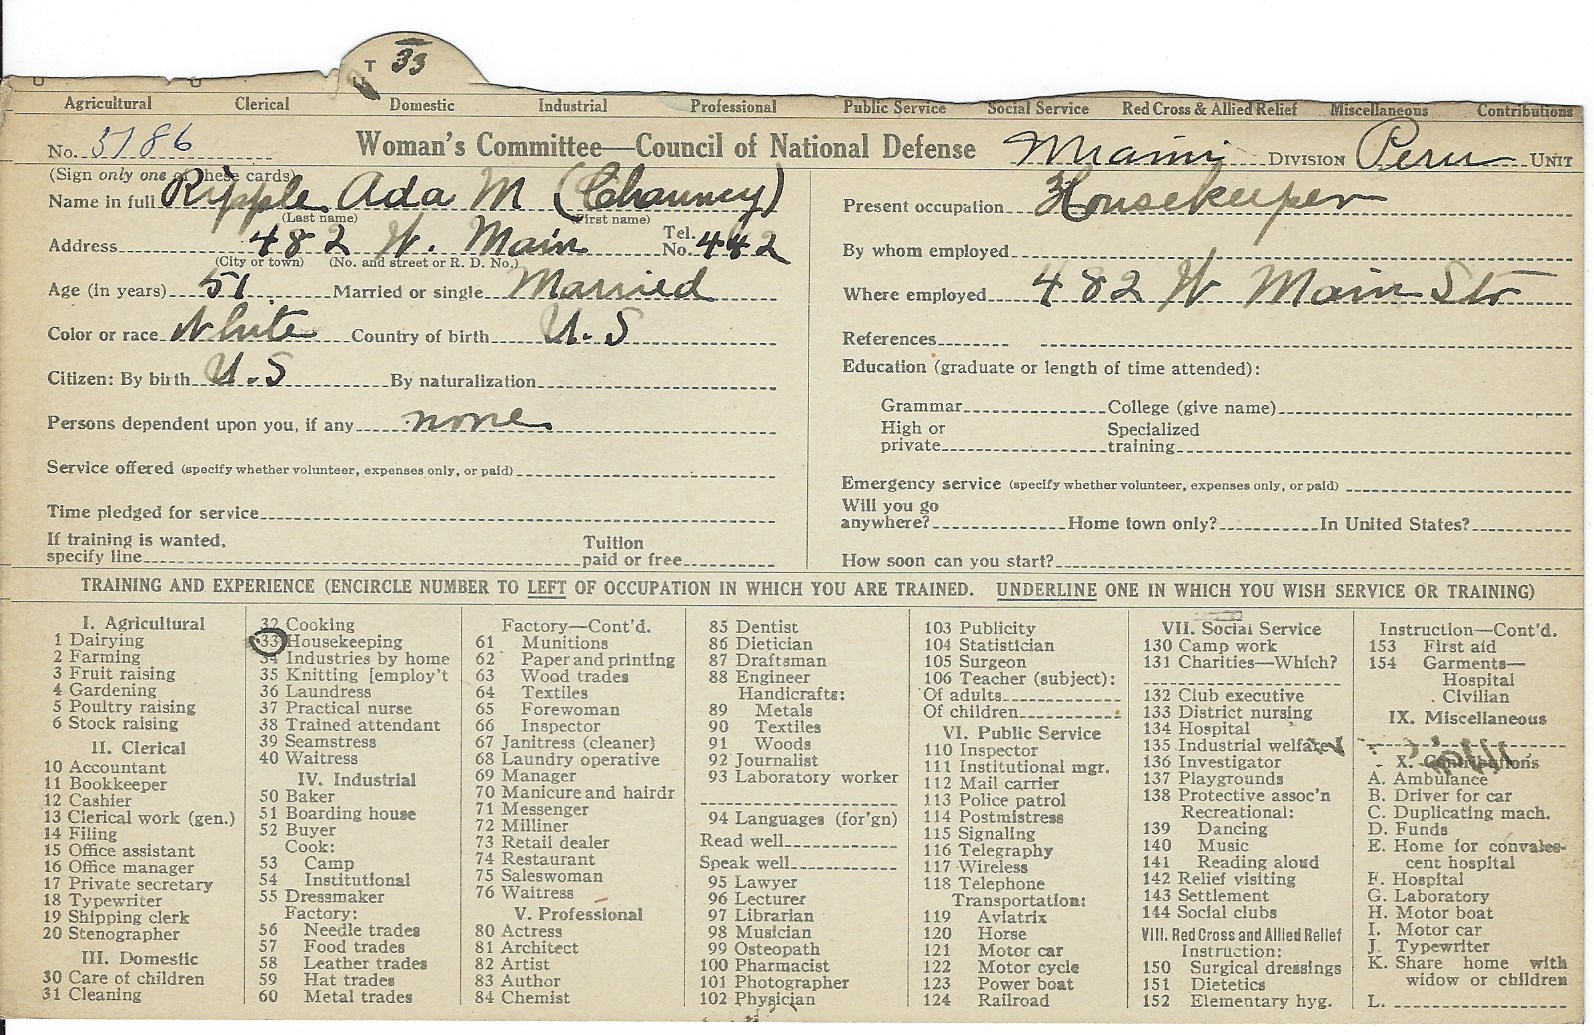 T 33
Agricultural Clerical Domestic Industrial Professional Public Service Social Service Red Cross & Allied Relief Miscellaneous Contributions
No. 5786 Woman's Committee—Council of National Defense Miami DIVISION Peru UNIT
(Sign only one of these cards)
Name in full Ripple Ada M (Chauncy)
(Last name) (First name)
Address 482 W. Main Tel. No. 442
(City or town) (No. and street or R. D. No.)
Age (in years) 51 Married or single Married
Color or race White Country of birth U.S
Citizen: By birth U.S By naturalization
Persons dependent upon you, if any none
Service offered (specify whether volunteer, expenses only, or paid)
Time pledged for service
If training is wanted, specify line Tuition paid or free
Present occupation Housekeeper
By whom employed
Where employed 482 W Main Str
References
Education (graduate or length of time attended):
Grammar College (give name)
High or private Specialized training
Emergency service (specify whether volunteer, expenses only, or paid)
Will you go anywhere? Home town only? In United States?
How soon can you start?
TRAINING AND EXPERIENCE (ENCIRCLE NUMBER TO LEFT OF OCCUPATION IN WHICH YOU ARE TRAINED. UNDERLINE ONE IN WHICH YOU WISH SERVICE OR TRAINING)
I. Agricultural
1 Dairying
2 Farming
3 Fruit raising
4 Gardening
5 Poultry raising
6 Stock raising
II. Clerical
10 Accountant
11 Bookkeeper
12 Cashier
13 Clerical work (gen.)
14 Filing
15 Office assistant
16 Office manager
17 Private secretary
18 Typewriter
19 Shipping clerk
20 Stenographer
III. Domestic
30 Care of children
31 Cleaning
32 Cooking
33 Housekeeping
34 Industries by home
35 Knitting [employ't
36 Laundress
37 Practical nurse
38 Trained attendant
39 Seamstress
40 Waitress
IV. Industrial
50 Baker
51 Boarding house
52 Buyer
Cook:
53 Camp
54 Institutional
55 Dressmaker
Factory:
56 Needle trades
57 Food trades
58 Leather trades
59 Hat trades
60 Metal trades
Factory—Cont'd.
61 Munitions
62 Paper and printing
63 Wood trades
64 Textiles
65 Forewoman
66 Inspector
67 Janitress (cleaner)
68 Laundry operative
69 Manager
70 Manicure and hairdr
71 Messenger
72 Milliner
73 Retail dealer
74 Restaurant
75 Saleswoman
76 Waitress
V. Professional
80 Actress
81 Architect
82 Artist
83 Author
84 Chemist
85 Dentist
86 Dietician
87 Draftsman
88 Engineer
Handicrafts:
89 Metals
90 Textiles
91 Woods
92 Journalist
93 Laboratory worker
94 Languages (for'gn)
Read well
Speak well
95 Lawyer
96 Lecturer
97 Librarian
98 Musician
99 Osteopath
100 Pharmacist
101 Photographer
102 Physician
103 Publicity
104 Statistician
105 Surgeon
106 Teacher (subject):
Of adults
Of children
VI. Public Service
110 Inspector
111 Institutional mgr.
112 Mail carrier
113 Police patrol
114 Postmistress
115 Signaling
116 Telegraphy
117 Wireless
118 Telephone
Transportation:
119 Aviatrix
120 Horse
121 Motor car
122 Motor cycle
123 Power boat
124 Railroad
VII. Social Service
130 Camp work
131 Charities—Which?
132 Club executive
133 District nursing
134 Hospital
135 Industrial welfare
136 Investigator
137 Playgrounds
138 Protective assoc'n
Recreational:
139 Dancing
140 Music
141 Reading aloud
142 Relief visiting
143 Settlement
144 Social clubs
VIII. Red Cross and Allied Relief
Instruction:
150 Surgical dressings
151 Dietetics
152 Elementary hyg.
Instruction—Cont'd.
153 First aid
154 Garments—
Hospital
Civilian
IX. Miscellaneous
X. Contributions
A. Ambulance
B. Driver for car
C. Duplicating mach.
D. Funds
E. Home for convales-
cent hospital
F. Hospital
G. Laboratory
H. Motor boat
I. Motor car
J. Typewriter
K. Share home with
widow or children
L.